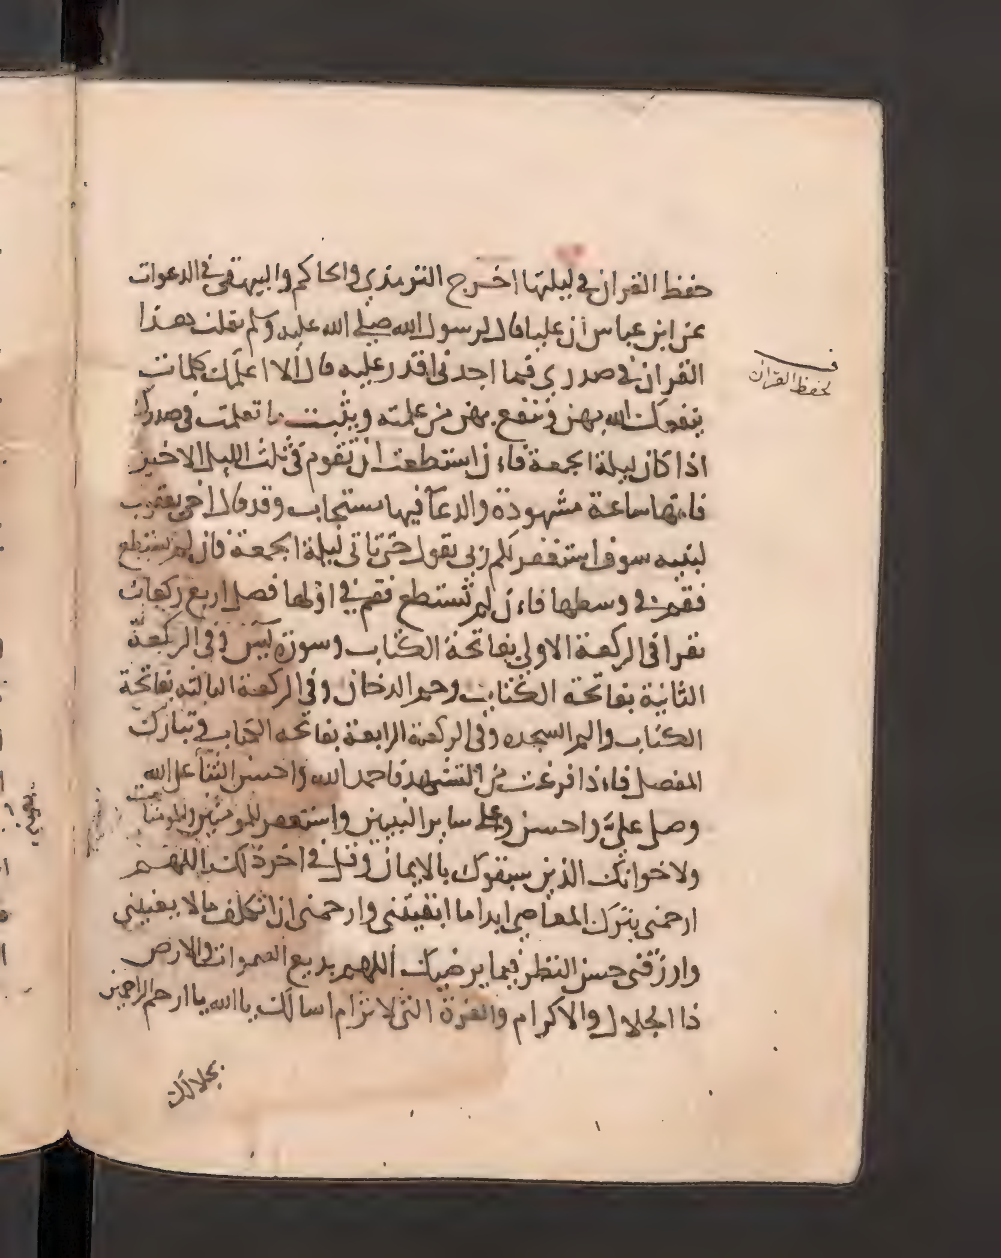 حفظ القران في ليلتها اخرج الترمذي والحاكم والبيهقي في الدعوات
عن ابن عباس ان عليا قال لرسول الله صلى الله عليه وسلم تفلت هذا
القران في صدري فما اجدني اقدر عليه قال الا اعلمك كلمات
ينفعك الله بهن وتنفع بهن من علمته ويثبت ما تعلمت في صدرك
اذا كان ليلة الجمعة فان استطعت ان تقوم في ثلث الليل الاخير
فانها ساعة مشهودة والدعآ فيها مستجاب وقد قال اخي يعقوب
لبنيه سوف استغفر لكم ربي يقول حتى تاتى ليلة الجمعة فان لم تستطع
فقم في وسطها فان لم تستطع فقم في اولها فصل اربع ركعات
تقرا في الركعة الاولى بفاتحة الكتاب وسورة يس وفي الركعة
الثانية بفاتحة الكتاب وحم الدخان وفي الركعة الثالثه بفاتحة
الكتاب والم السجده وفي الركعة الرابعة بفاتحه الكتاب وتبارك
المفصل فاذا فرغت من التشهد فاحمد الله واحسن الثنآ على الله
وصل عليّ واحسن وعلى ساير النبيين واستغفر للمومنين وللمومنات
ولاخوانك الذين سبقوك بالايمان وقل في اخر ذلك اللهم
ارحمني بترك المعاصي ابدا ما ابقيتني وارحمني ان اتكلف مالا يعنيني
وارزقني حسن النظر فيما يرضيك اللهم بديع السموات والارض
ذا الجلال والاكرام والعزة التى لا ترام اسالك يا الله يا ارحم الراحمين
بجلالك
لحفظ القران